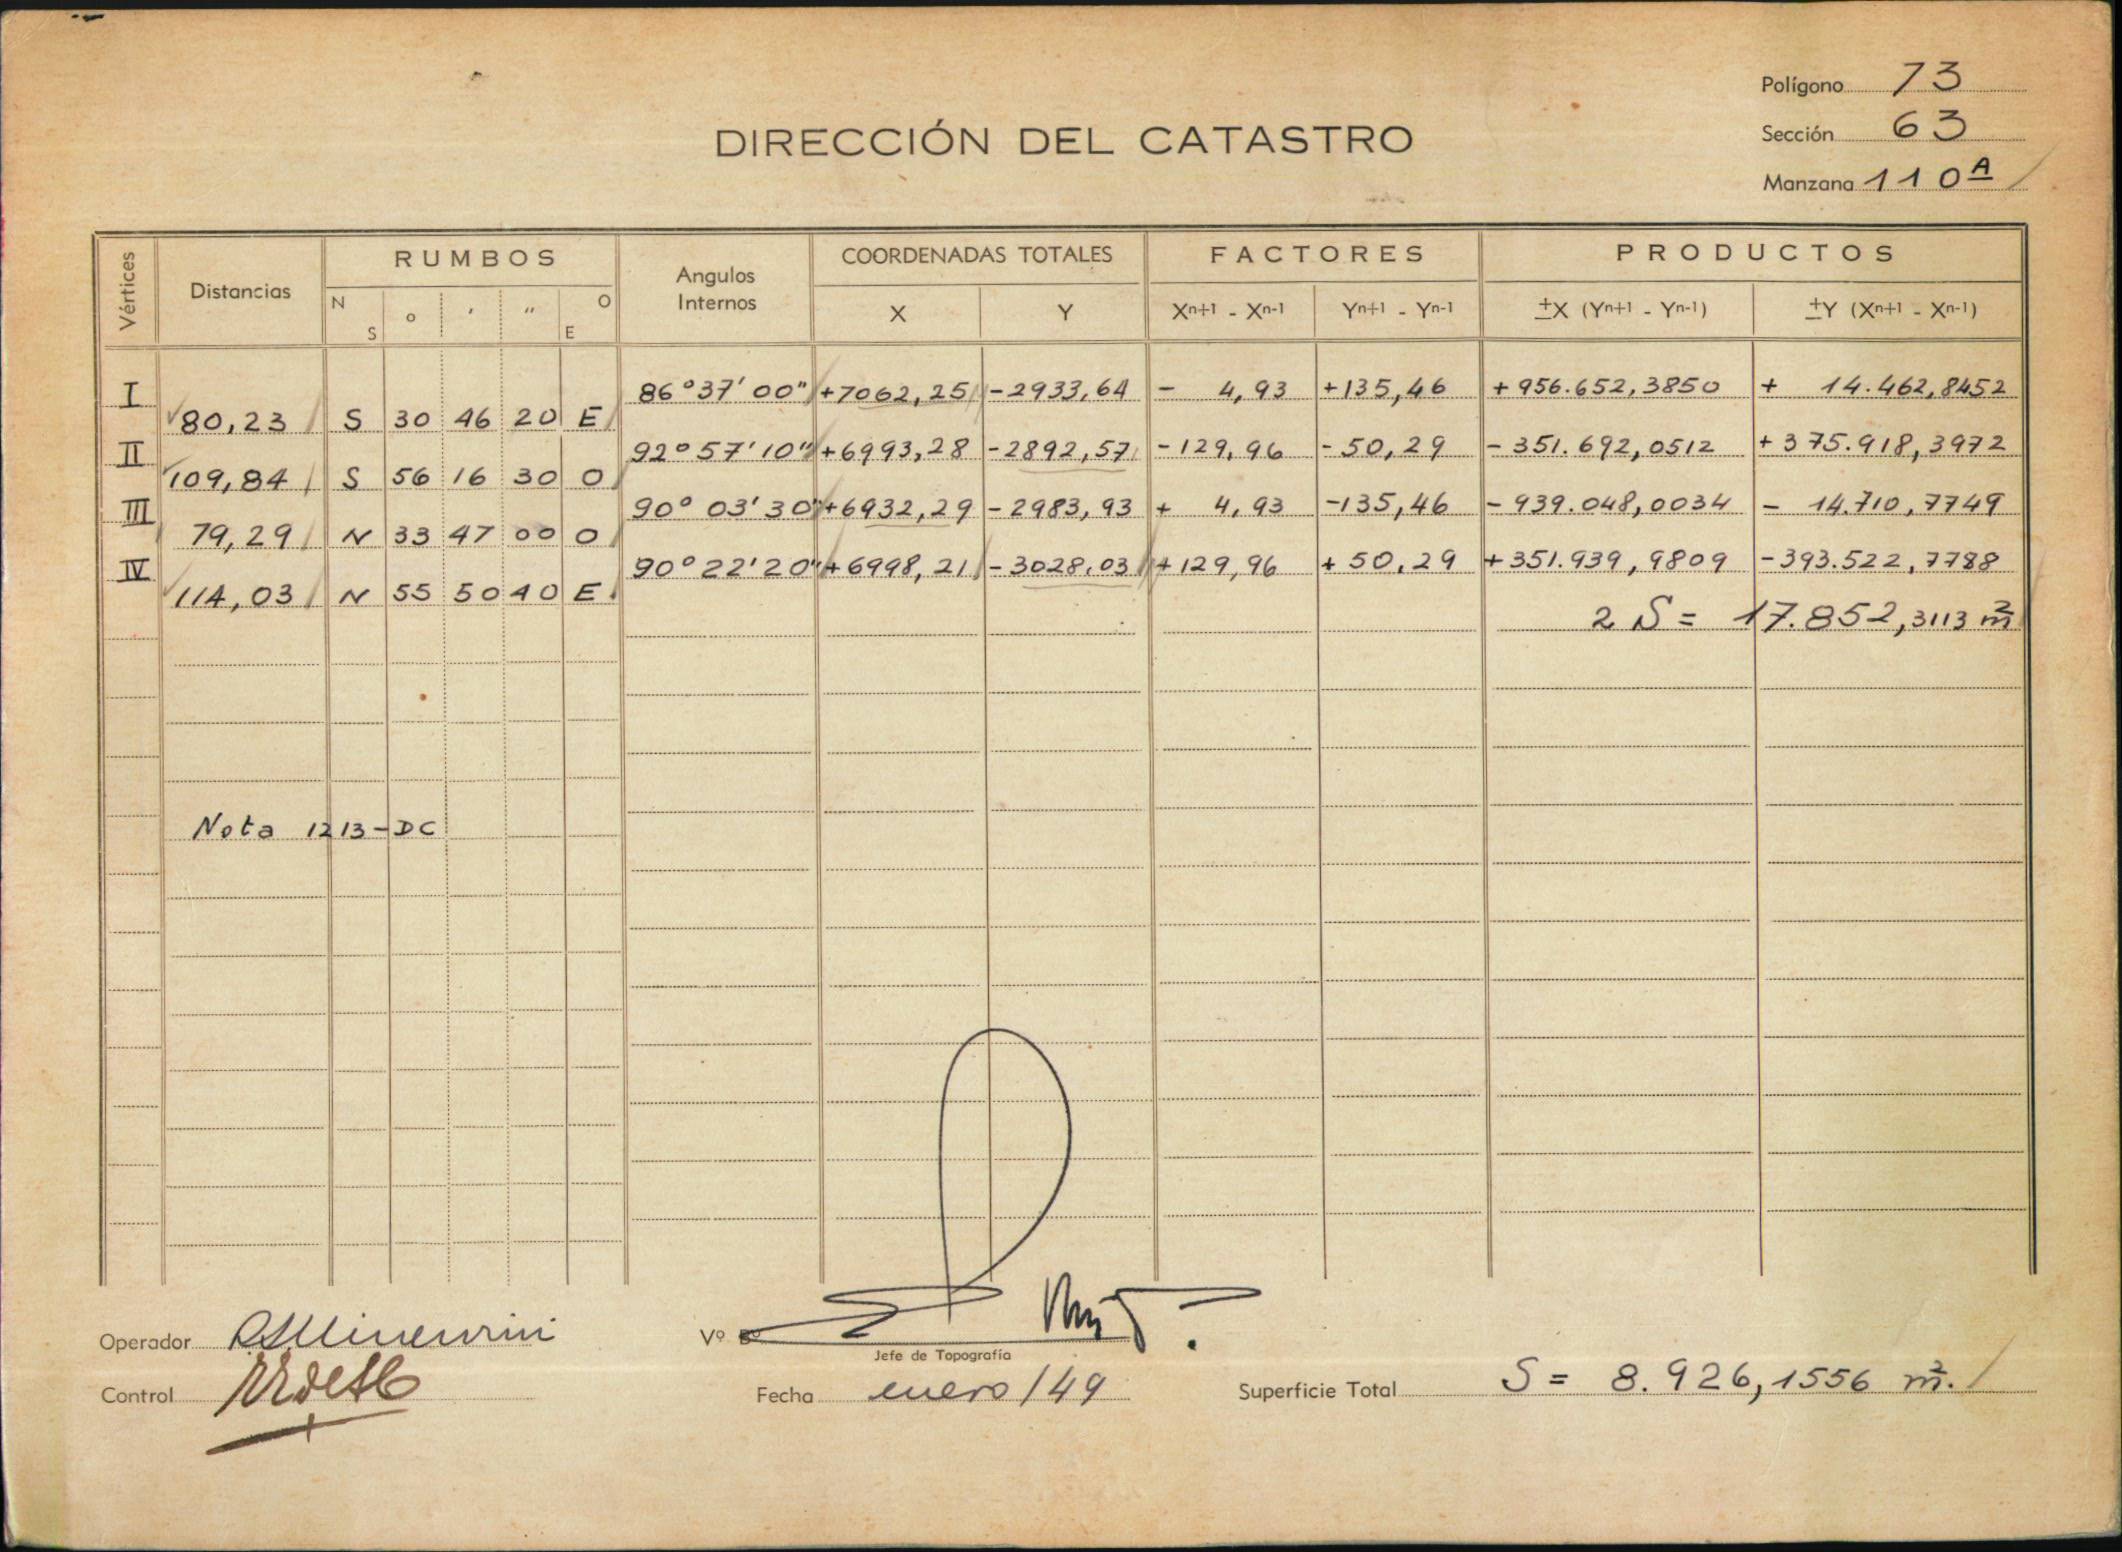 Polígono 73
Sección 63
Manzana 110A
DIRECCIÓN DEL CATASTRO
Vértices Distancias RUMBOS Angulos Internos COORDENADAS TOTALES FACTORES PRODUCTOS
N S o ' " O E X Y Xn+1 - Xn-1 Yn+1 - Yn-1 ±X (Yn+1 - Yn-1) ±Y (Xn+1 - Xn-1)
I 86°37'00" +7062,25 -2933,64 - 4,93 +135,46 +956.652,3850 + 14.462,8452
80,23 S 30 46 20 E
II 92°57'10" +6993,28 -2892,57 -129,96 -50,29 -351.692,0512 +375.918,3972
109,84 S 56 16 30 O
III 90°03'30" +6932,29 -2983,93 + 4,93 -135,46 -939.048,0034 - 14.710,7749
79,29 N 33 47 00 O
IV 90°22'20" +6998,21 -3028,03 +129,96 +50,29 +351.939,9809 -393.522,7788
114,03 N 55 50 40 E
2 S = 17.852,3113 m2
Nota 1213-DC
Operador
Vº Bº
Jefe de Topografía
Control
Fecha enero/49
Superficie Total S = 8.926,1556 m2.